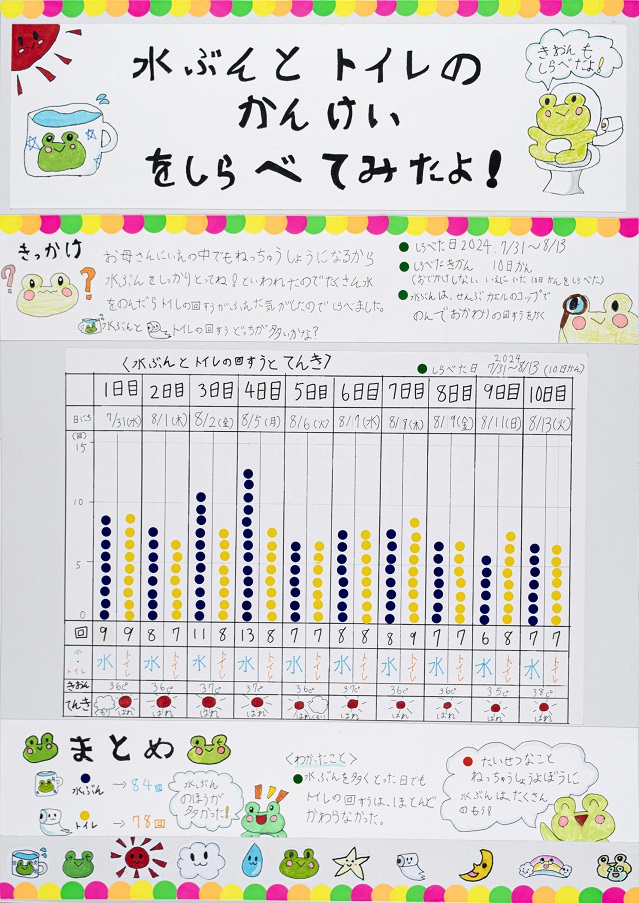 水ぶんと トイレの
かんけい
をしらべてみたよ!
きおんも
しらべたよ!
きっかけ
お母さんにいえの中でもねっちゅうしょうになるから
水ぶんをしっかりとってね!といわれたのでたくさん水
をのんだらトイレの回すうがふえた気がしたのでしらべました。
水ぶんと トイレの回すうどっちが多いかな?
しらべた日 2024. 7/31~8/13
しらべたきかん 10日かん
(おでかけしない いえにいた10日かんをしらべた)
水ぶんは、せんぶカエルのコップで
のんでおかわりの回すうをかく
〈水ぶんとトイレの回すうと てんき〉
しらべた日 2024 7/31~8/13 (10日かん)
1日目 2日目 3日目 4日目 5日目 6日目 7日目 8日目 9日目 10日目
日にち 7/31(水) 8/1(木) 8/2(金) 8/5(月) 8/6(火) 8/7(水) 8/8(木) 8/9(金) 8/11(日) 8/13(火)
(回)
15
10
5
0
回 9 9 8 7 11 8 13 8 7 7 8 8 8 9 7 7 6 8 7 7
水・トイレ 水 トイレ 水 トイレ 水 トイレ 水 トイレ 水 トイレ 水 トイレ 水 トイレ 水 トイレ 水 トイレ 水 トイレ
きおん 36℃ 36℃ 37℃ 37℃ 36℃ 37℃ 36℃ 36℃ 35℃ 38℃
てんき くもり はれ はれ はれ はれ はれ くもり はれ はれ はれ はれ はれ
まとめ
水ぶん → 84回
トイレ → 78回
水ぶん
のほうが
多かった!
〈わかったこと〉
水ぶんを多くとった日でも
トイレの回すうは、ほとんど
かわらなかった。
たいせつなこと
ねっちゅうしょうよぼうに
水ぶんは、たくさん
のもう!